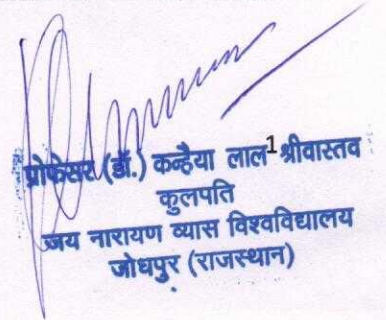 प्रोफेसर (डॉ.) कन्हैया लाल 1 श्रीवास्तव
कुलपति
जय नारायण व्यास विश्वविद्यालय
जोधपुर (राजस्थान)